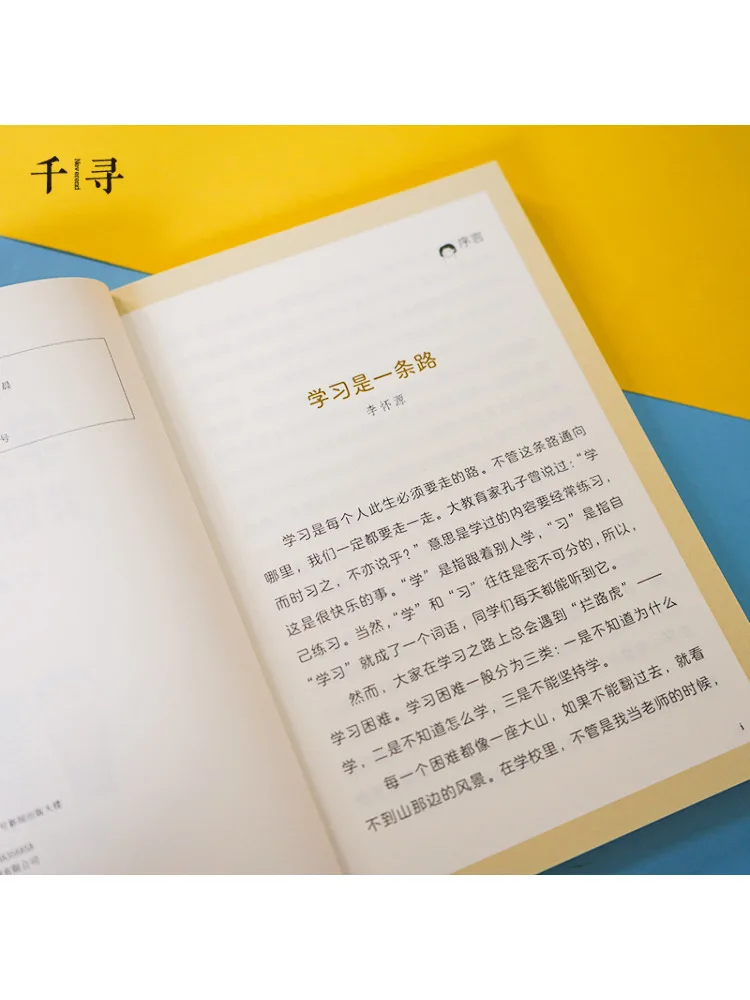 千寻
Neverend
晨
号
序言
学习是一条路
李怀源
学习是每个人此生必须要走的路。不管这条路通向
哪里，我们一定都要走一走。大教育家孔子曾说过：“学
而时习之，不亦说乎？”意思是学过的内容要经常练习，
这是很快乐的事。“学”是指跟着别人学，“习”是指自
己练习。当然，“学”和“习”往往是密不可分的，所以，
“学习”就成了一个词语，同学们每天都能听到它。
然而，大家在学习之路上总会遇到“拦路虎”——
学习困难。学习困难一般分为三类：一是不知道为什么
学，二是不知道怎么学，三是不能坚持学。
每一个困难都像一座大山，如果不能翻过去，就看
不到山那边的风景。在学校里，不管是我当老师的时候，
i
新闻出版大楼
有限公司